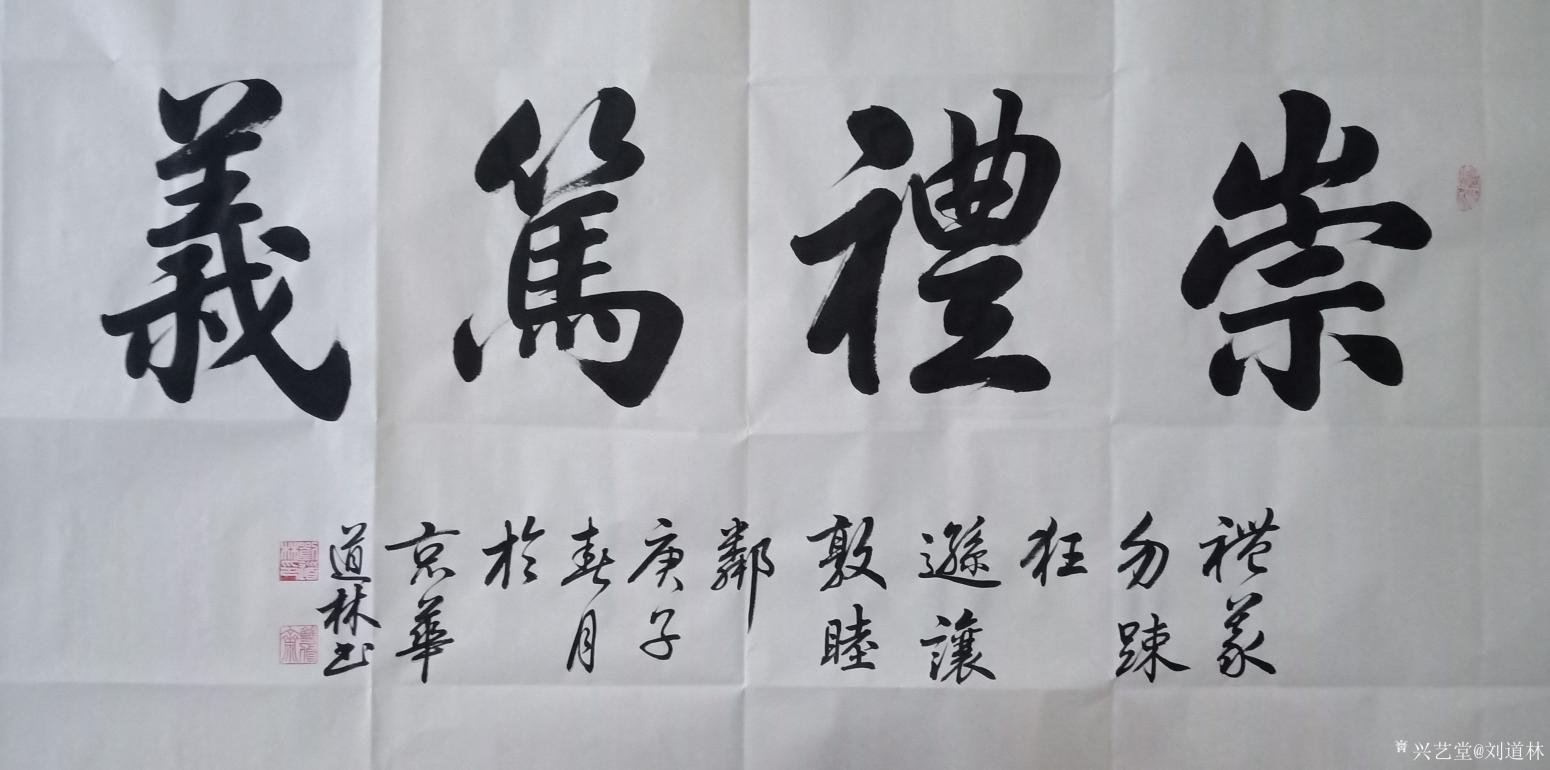 崇禮篤義
禮義
勿踈
狂
遜讓
敦睦
鄰
庚子
春月
於
京華
道林书
兴艺堂@刘道林